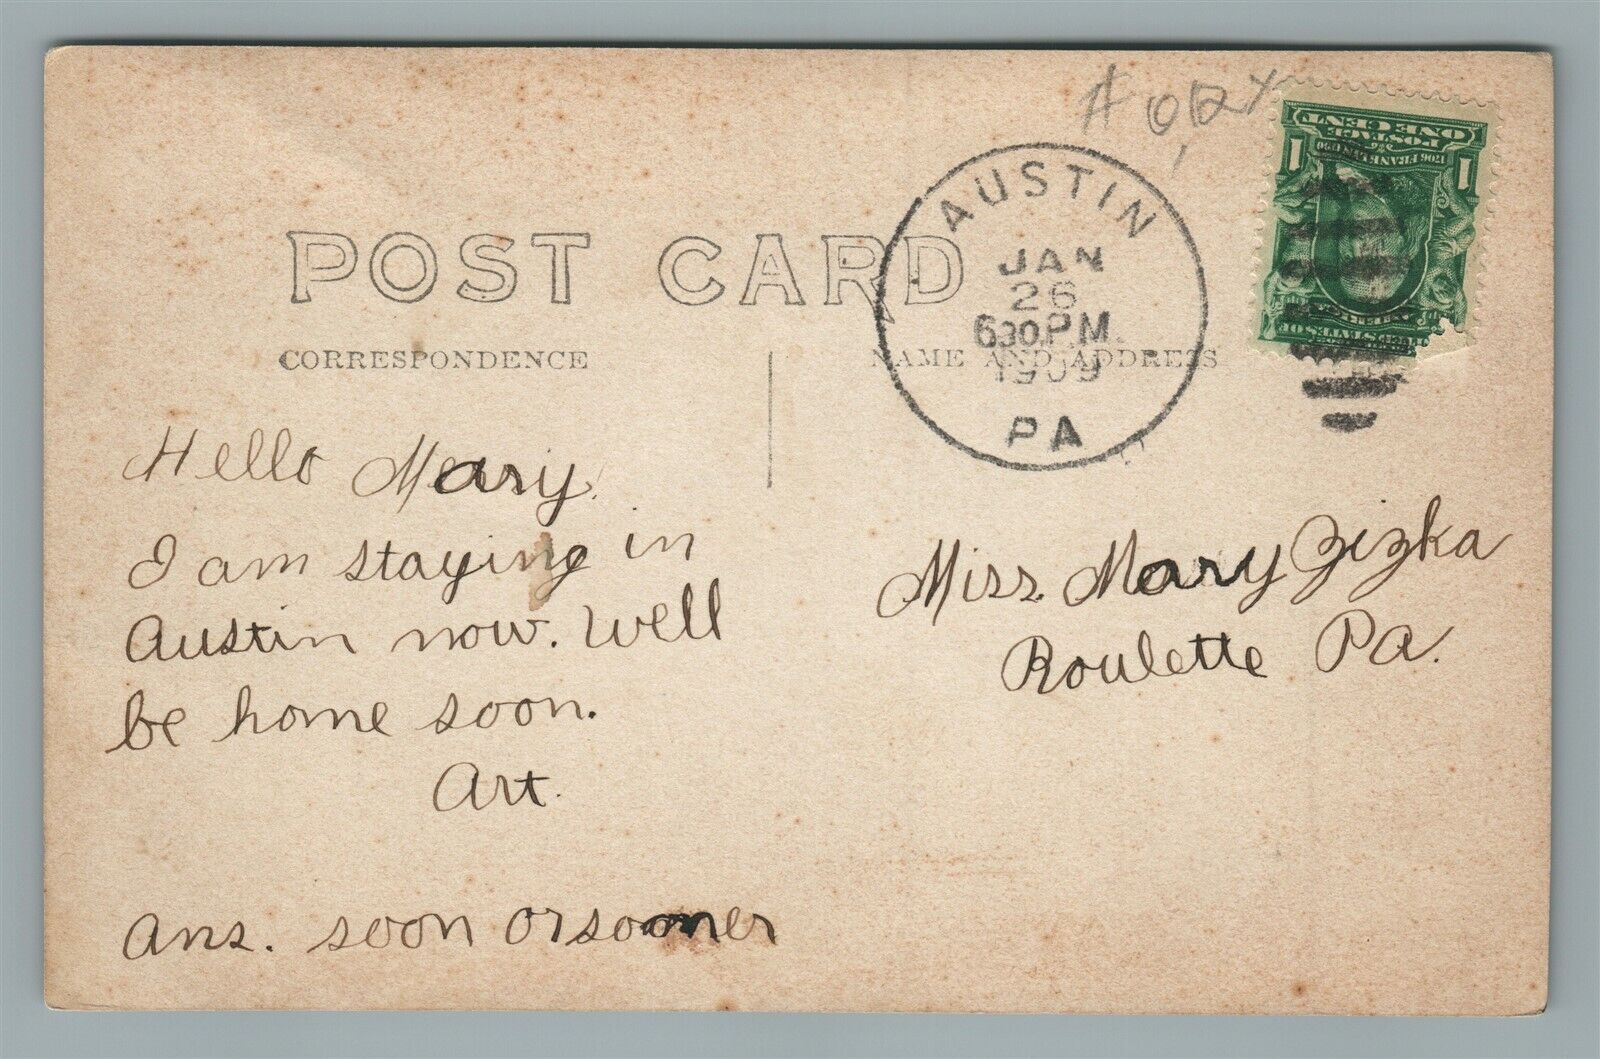 POST CARD
CORRESPONDENCE
NAME AND ADDRESS
AUSTIN
JAN
26
630 P.M.
1909
PA
POSTAGE
ONE CENT
1 1
Hello Mary.
I am staying in
Austin now. Well
be home soon.
Art.
Ans. soon or sooner
Miss. Mary Zizka
Roulette Pa.